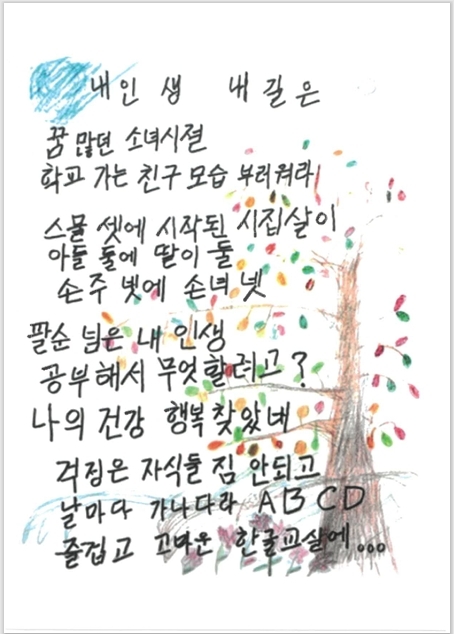 내인생 내길은
꿈 많던 소녀시절
학교 가는 친구 모습 부러워라
스물 셋에 시작된 시집살이
아들 둘에 딸이 둘
손주 넷에 손녀 넷
팔순 넘은 내 인생
공부해서 무엇할려고?
나의 건강 행복찾았네
걱정은 자식들 짐 안되고
날마다 가나다라 ABCD
즐겁고 고마운 한글교실에...